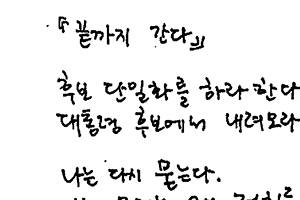 『끝까지 간다』
후보 단일화를 하라 한다
대통령 후보에서 내려오라
나는 다시 묻는다.